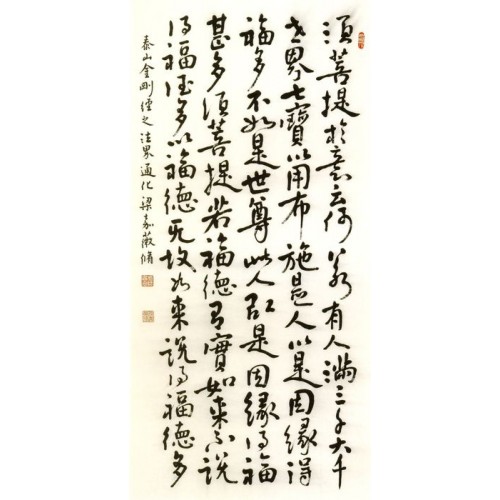 須菩提於意云何若有人滿三千大千
世界七寶以用布施是人以是因緣得
福多不如是世尊此人以是因緣得福
甚多須菩提若福德有實如來不說
得福德多以福德无故如來說得福德多
泰山金剛經之法界通化梁嘉